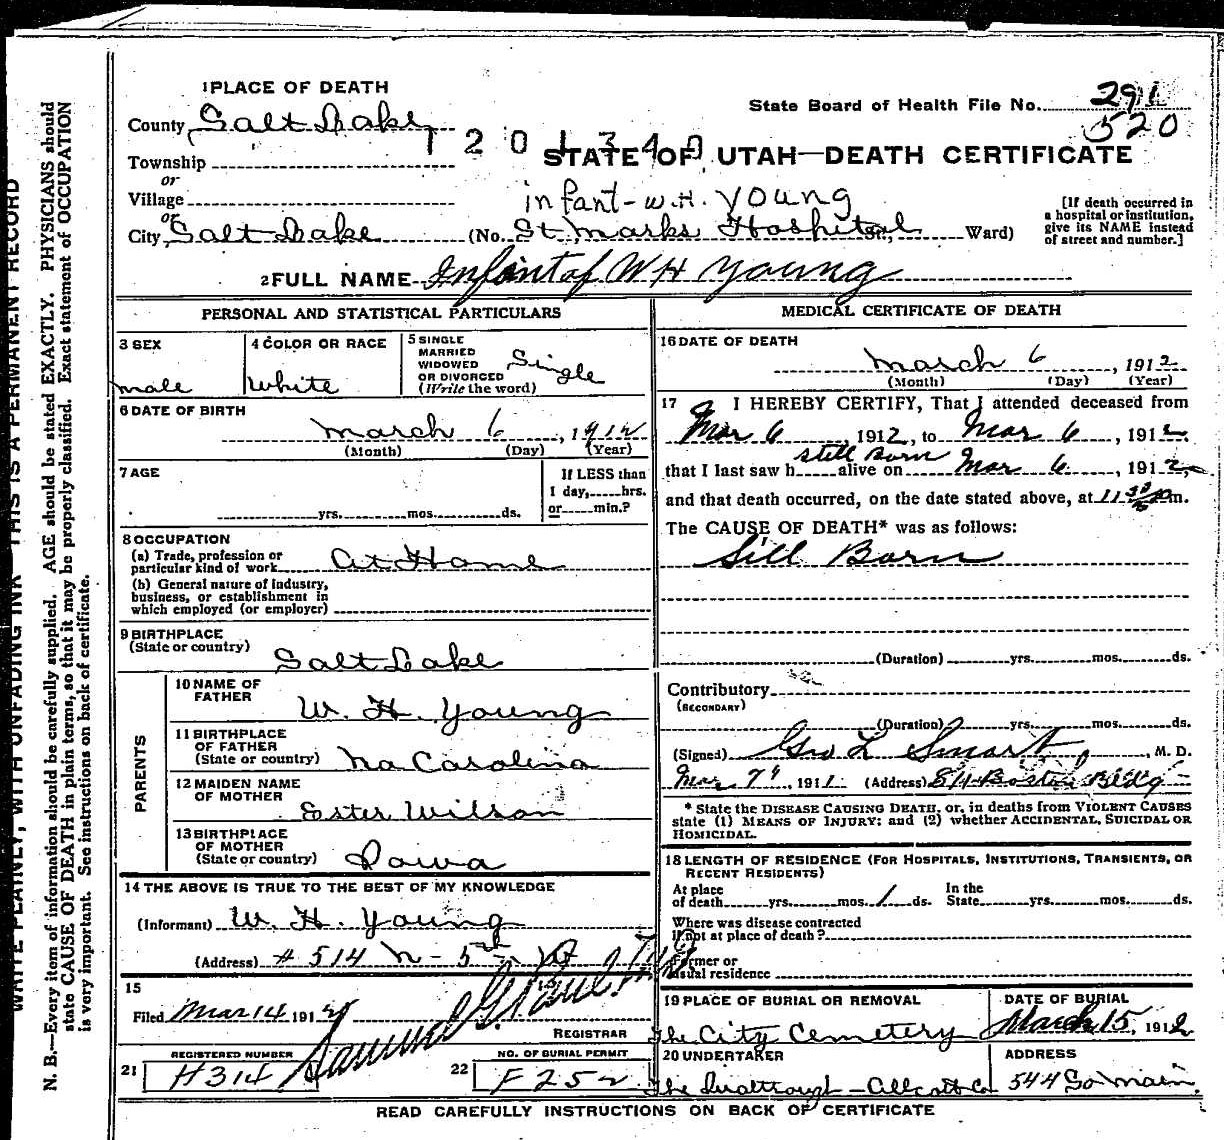 1 PLACE OF DEATH
State Board of Health File No. 291
520
County Salt Lake
1201340
STATE OF UTAH—DEATH CERTIFICATE
Township
or
Village
infant - W.H. Young
or
City Salt Lake (No. St. Marks Hospital St., Ward)
[If death occurred in a hospital or institution, give its NAME instead of street and number.]
2 FULL NAME Infant of W H Young
PERSONAL AND STATISTICAL PARTICULARS
3 SEX
male
4 COLOR OR RACE
White
5 SINGLE
MARRIED
WIDOWED
OR DIVORCED
(Write the word)
Single
6 DATE OF BIRTH
March 6, 1912
(Month) (Day) (Year)
7 AGE
yrs. mos. ds.
If LESS than
1 day, hrs.
or min.?
8 OCCUPATION
(a) Trade, profession or
particular kind of work At Home
(b) General nature of industry,
business, or establishment in
which employed (or employer)
9 BIRTHPLACE
(State or country)
Salt Lake
PARENTS
10 NAME OF
FATHER
W. H. Young
11 BIRTHPLACE
OF FATHER
(State or country) No Carolina
12 MAIDEN NAME
OF MOTHER
Ester Wilson
13 BIRTHPLACE
OF MOTHER
(State or country) Iowa
14 THE ABOVE IS TRUE TO THE BEST OF MY KNOWLEDGE
(Informant) W. H. Young
(Address) # 514 N - 5th
15
Filed Mar 14 191
REGISTRAR
REGISTERED NUMBER
21 H314
NO. OF BURIAL PERMIT
22 F252
MEDICAL CERTIFICATE OF DEATH
16 DATE OF DEATH
March 6, 1912
(Month) (Day) (Year)
17 I HEREBY CERTIFY, That I attended deceased from
Mar 6, 1912, to Mar 6, 1912,
still Born
that I last saw h alive on Mar 6, 1912,
and that death occurred, on the date stated above, at 11 m.
The CAUSE OF DEATH* was as follows:
Sill Born
(Duration) yrs. mos. ds.
Contributory
(SECONDARY)
(Duration) yrs. mos. ds.
(Signed) Geo L Smart, M. D.
Mar 7", 1911 (Address) 814 Boston Bldg
* State the DISEASE CAUSING DEATH, or, in deaths from VIOLENT CAUSES
state (1) MEANS OF INJURY; and (2) whether ACCIDENTAL, SUICIDAL OR
HOMICIDAL.
18 LENGTH OF RESIDENCE (FOR HOSPITALS, INSTITUTIONS, TRANSIENTS, OR
RECENT RESIDENTS)
At place
of death yrs. mos. 1 ds.
In the
State yrs. mos. ds.
Where was disease contracted
if not at place of death?
Former or
usual residence
19 PLACE OF BURIAL OR REMOVAL
The City Cemetery
DATE OF BURIAL
March 15, 1912
20 UNDERTAKER
The Allcott Co
ADDRESS
544 So Main
READ CAREFULLY INSTRUCTIONS ON BACK OF CERTIFICATE
WRITE PLAINLY, WITH UNFADING INK—THIS IS A PERMANENT RECORD
N. B.—Every item of information should be carefully supplied. AGE should be stated EXACTLY. PHYSICIANS should
state CAUSE OF DEATH in plain terms, so that it may be properly classified. Exact statement of OCCUPATION
is very important. See instructions on back of certificate.